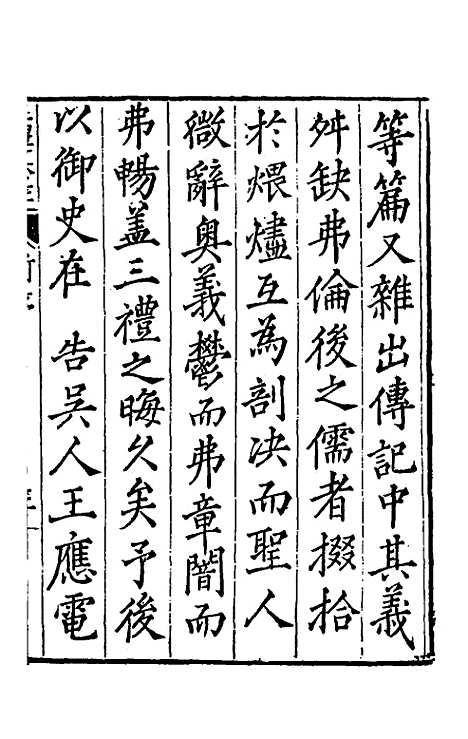 等篇又雜出傳記中其義
舛缺弗倫後之儒者掇拾
於煨燼互為剖决而聖人
微辭奥義鬱而弗章闇而
弗暢盖三禮之晦久矣予後
以御史在 告吳人王應電